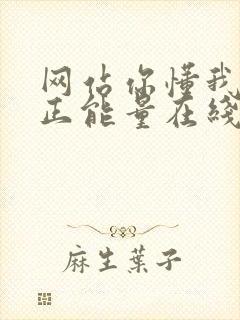 网站你懂我
正能量在线
麻生葉子